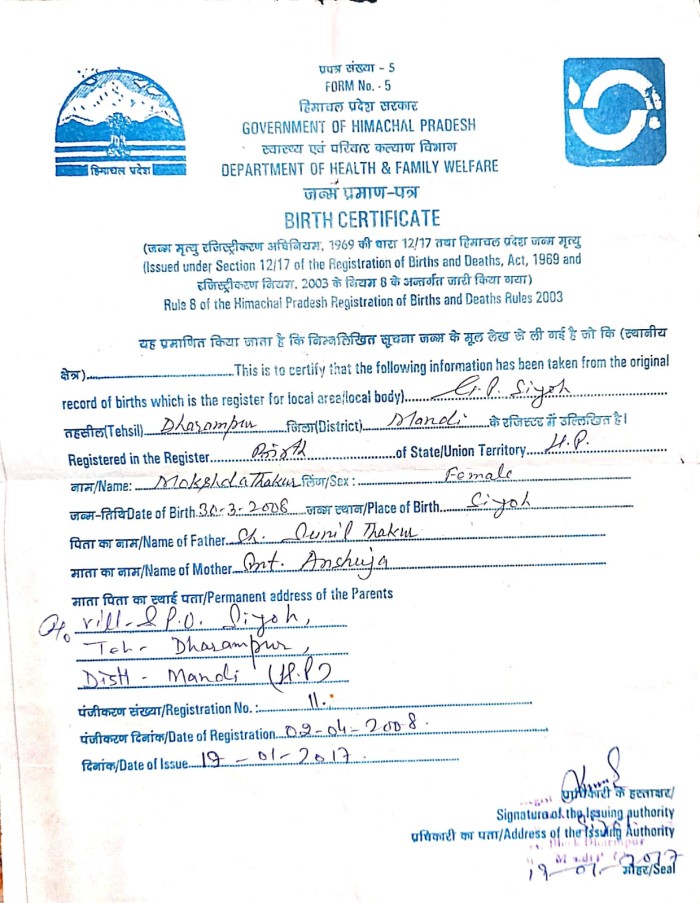 प्रपत्र संख्या - 5
FORM No. - 5
हिमाचल प्रदेश सरकार
GOVERNMENT OF HIMACHAL PRADESH
स्वास्थ्य एवं परिवार कल्याण विभाग
DEPARTMENT OF HEALTH & FAMILY WELFARE
हिमाचल प्रदेश
जन्म प्रमाण-पत्र
BIRTH CERTIFICATE
(जन्म मृत्यु रजिस्ट्रीकरण अधिनियम, 1969 की धारा 12/17 तथा हिमाचल प्रदेश जन्म मृत्यु
(Issued under Section 12/17 of the Registration of Births and Deaths, Act, 1969 and
रजिस्ट्रीकरण नियम, 2003 के नियम 8 के अन्तर्गत जारी किया गया)
Rule 8 of the Himachal Pradesh Registration of Births and Deaths Rules 2003
यह प्रमाणित किया जाता है कि निम्नलिखित सूचना जन्म के मूल लेख से ली गई है जो कि (स्थानीय
क्षेत्र)..........This is to certify that the following information has been taken from the original
record of births which is the register for local area/local body)..........G.P. Siyoh
तहसील(Tehsil) Dharampur जिला(District) Mandi के रजिस्टर में उल्लिखित है।
Registered in the Register..... Birth .....of State/Union Territory..... H.P.
नाम/Name: Mokshda Thakur लिंग/Sex : Female
जन्म-तिथि Date of Birth 30-3-2008 जन्म स्थान/Place of Birth Siyoh
पिता का नाम/Name of Father Sh. Sunil Thakur
माता का नाम/Name of Mother Smt. Anshuja
माता पिता का स्थाई पता/Permanent address of the Parents
Vill- & P.O. Siyoh,
Teh- Dharampur,
Distt - Mandi (H.P)
पंजीकरण संख्या/Registration No. : 11.
पंजीकरण दिनांक/Date of Registration 02-04-2008.
दिनांक/Date of Issue 19-01-2017.
प्राधिकारी के हस्ताक्षर/
Signature of the Issuing authority
प्रधिकारी का पता/Address of the Issuing Authority
19-01-2017
मोहर/Seal